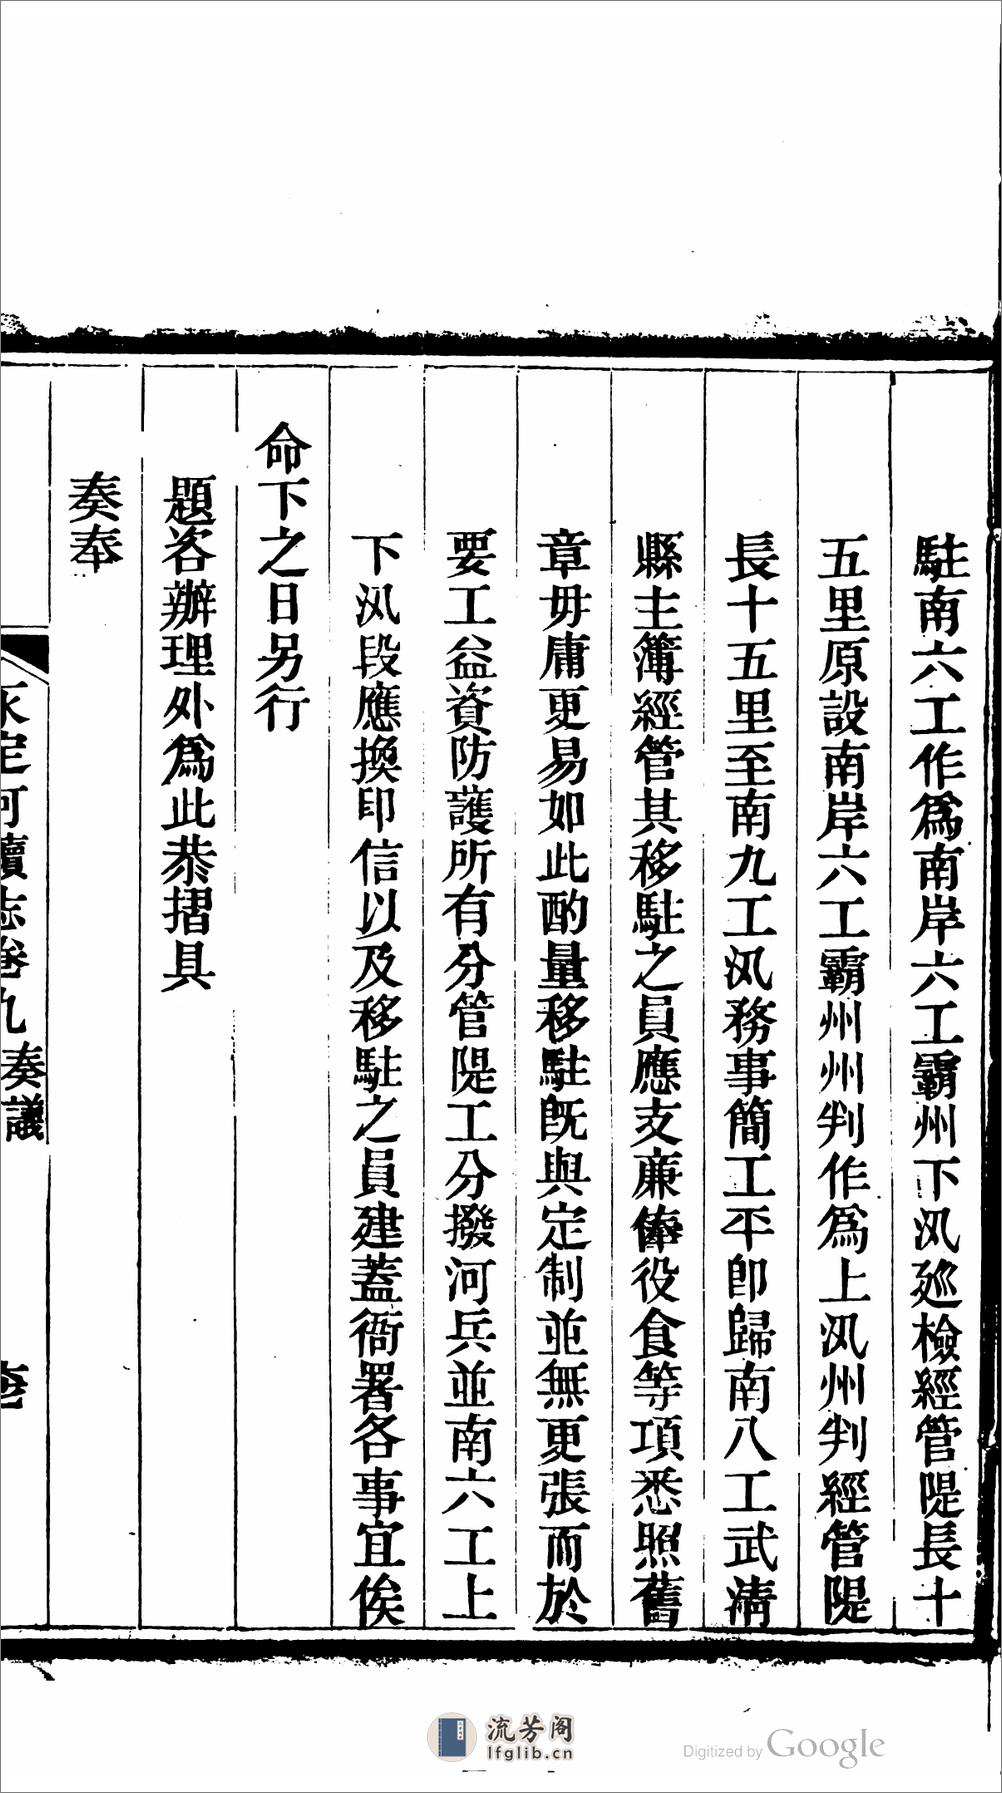 駐南六工作爲南岸六工霸州下汛廵檢經管隄長十
五里原設南岸六工霸州州判作爲上汛州判經管隄
長十五里至南九工汛務事簡工平卽歸南八工武清
縣主簿經管其移駐之員應支廉俸役食等項悉照舊
章毋庸更易如此酌量移駐旣與定制並無更張而於
要工益資防護所有分管隄工分撥河兵並南六工上
下汛段應換印信以及移駐之員建蓋衙署各事宜俟
命下之日另行
題咨辦理外爲此恭摺具
奏奉
永定河續志卷九 奏議
流芳阁
lfglib.cn
Digitized by Google